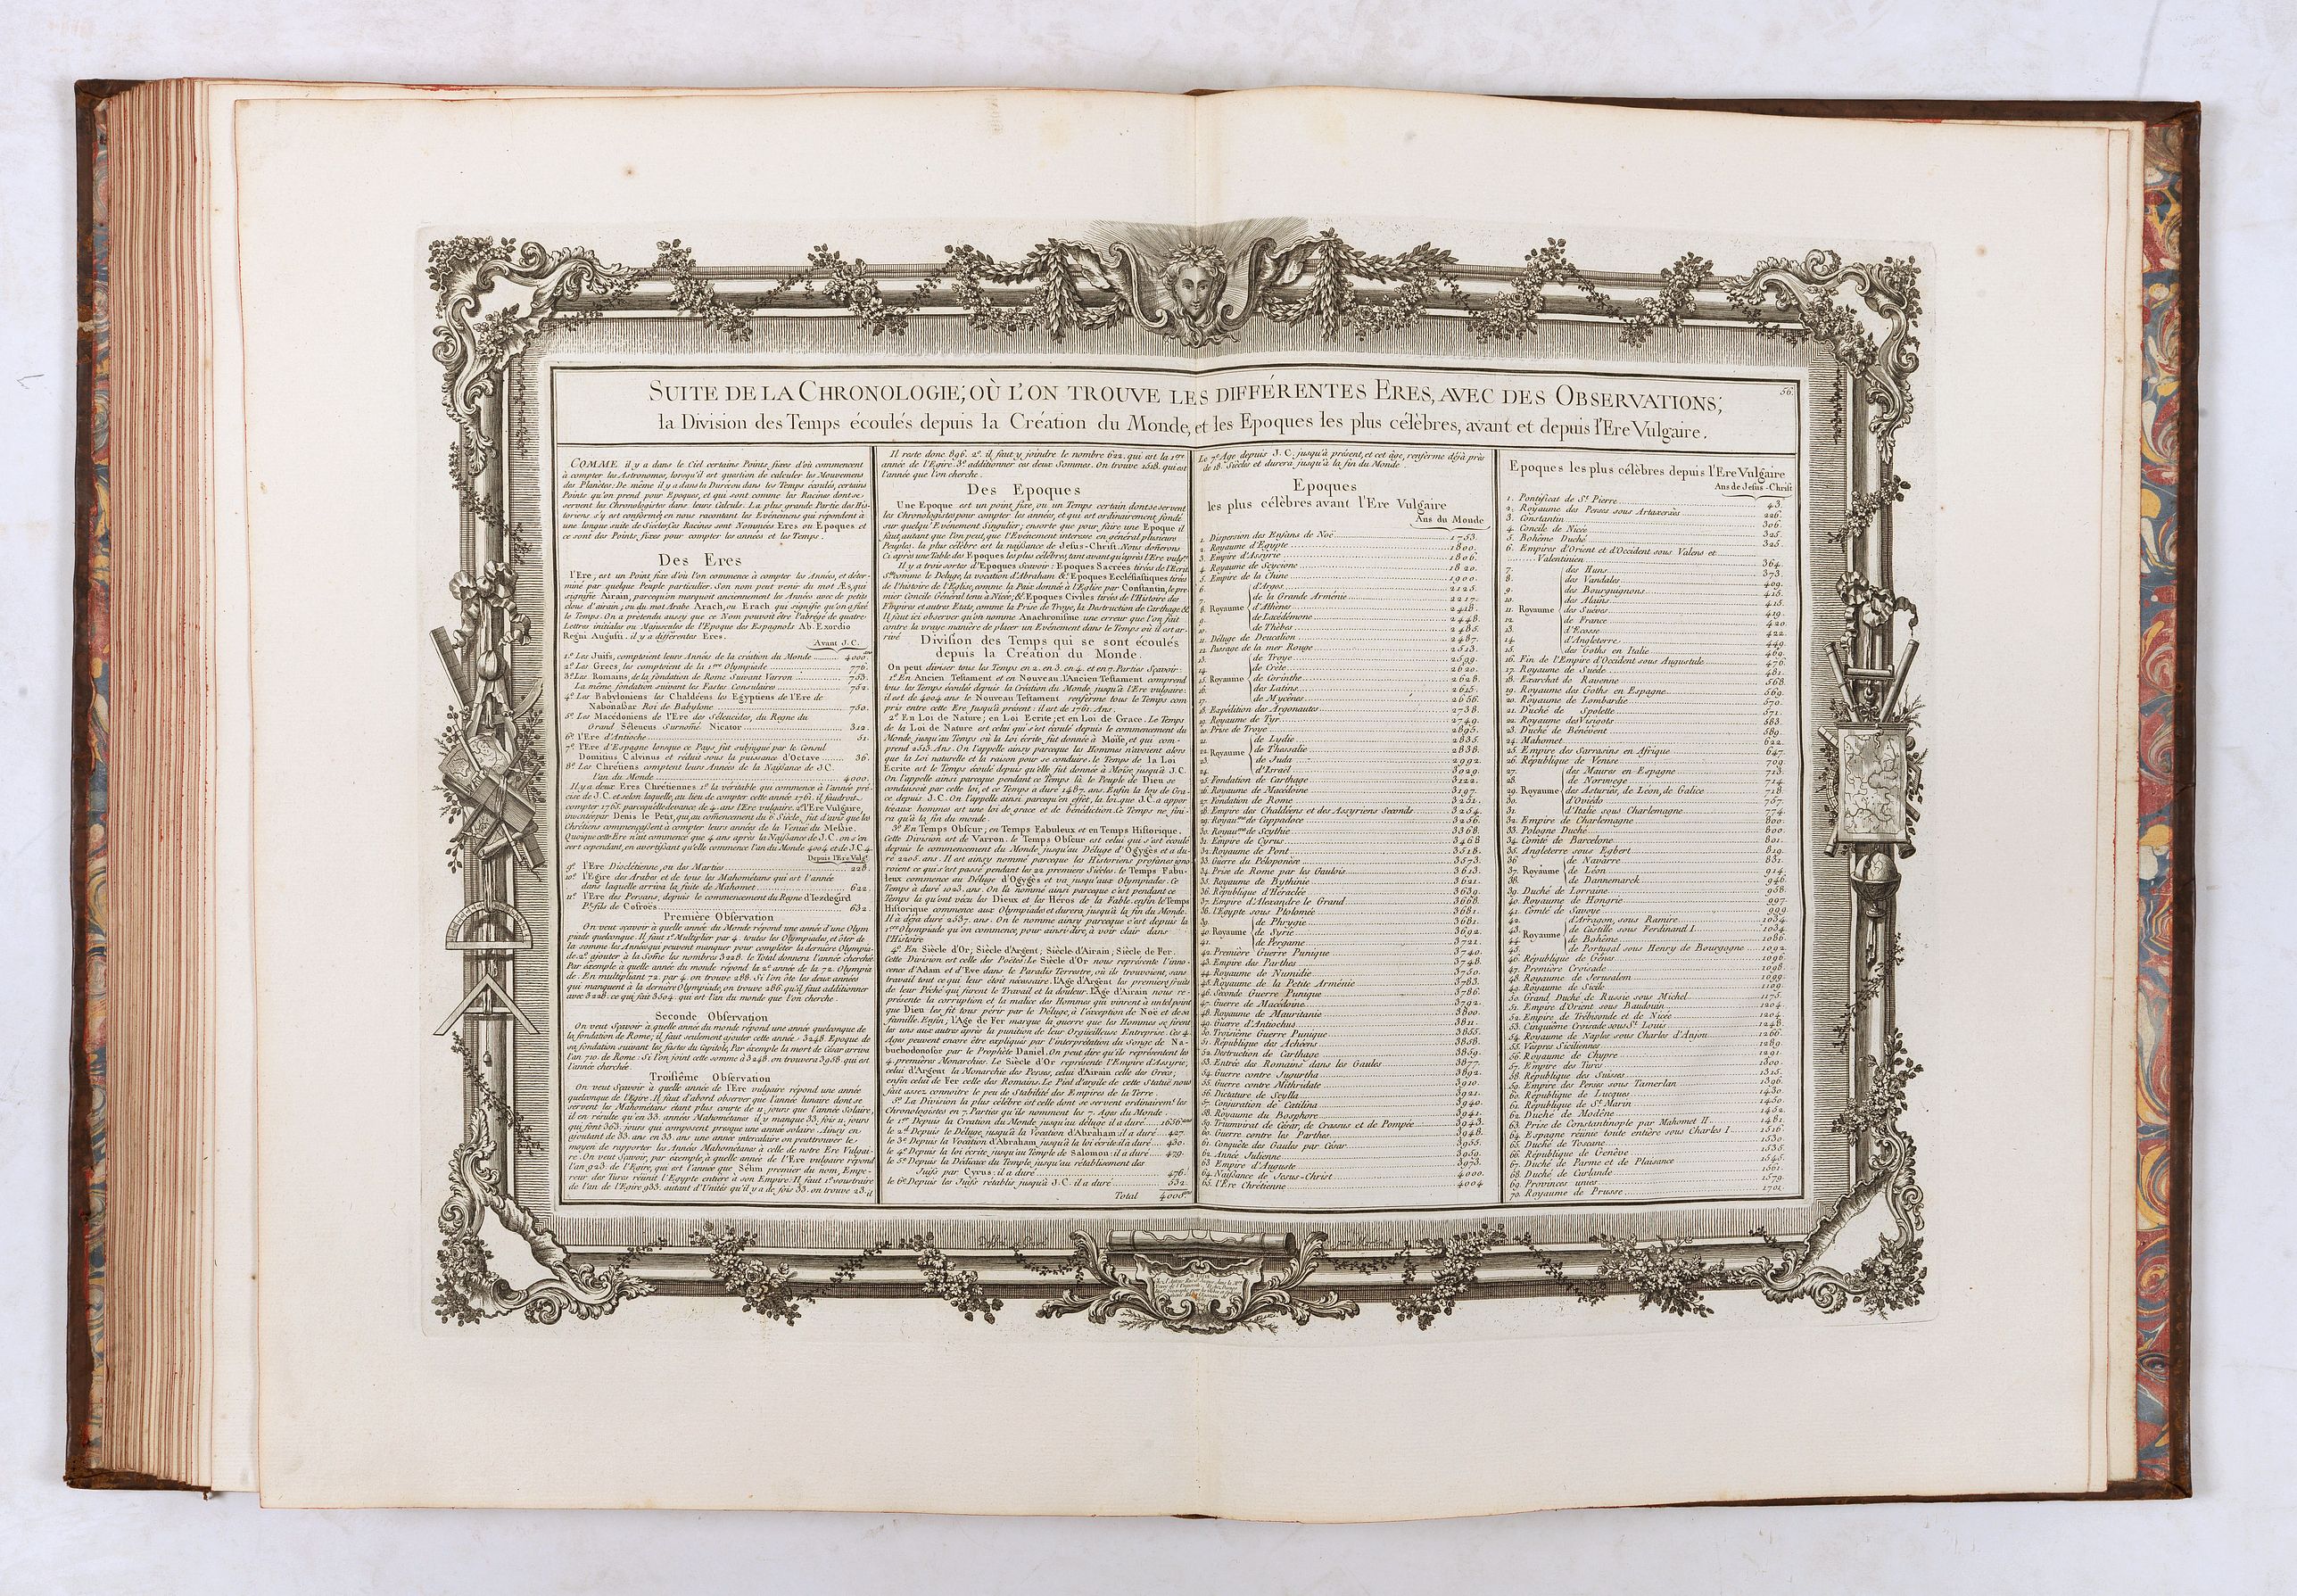 56.
SUITE DE LA CHRONOLOGIE; OÙ L'ON TROUVE LES DIFFÉRENTES ERES, AVEC DES OBSERVATIONS;
la Division des Temps écoulés depuis la Création du Monde, et les Epoques les plus célèbres, avant et depuis l'Ere Vulgaire.
COMME il y a dans le Ciel certains Points fixes d'où commencent
à compter les Astronomes, lorsqu'il est question de calculer les Mouvemens
des Planètes: De même il y a dans la Durée ou dans les Temps écoulés, certains
Points qu'on prend pour Epoques, et qui sont comme les Racines dont se
servent les Chronologistes dans leurs Calculs. La plus grande Partie des His-
toriens s'y est conformée en nous racontant les Evénemens qui répondent à
une longue suite de Siècles. Ces Racines sont Nommées Eres ou Epoques et
ce sont des Points fixes pour compter les années et les Temps.
Des Eres
l'Ere, est un Point fixe d'où l'on commence à compter les Années, et déter-
miné par quelque Peuple particulier. Son nom peut venir du mot Æs, qui
signifie Airain, parcequ'on marquoit anciennement les Années avec de petits
clous d'airain; ou du mot Arabe Arach, ou Erach qui signifie qu'on a fixé
le Temps. On a prétendu aussy que ce Nom pouvoit être l'abrégé de quatre
Lettres initiales ou Majuscules de l'Epoque des Espagnols Ab. Exordio
Regni Augusti. il y a différentes Eres.
Avant J.C.
1.º Les Juifs, comptoient leurs Années de la création du Monde 4000.
2.º Les Grecs, les comptoient de la 1.ere Olympiade 776.
3.º Les Romains, de la fondation de Rome Suivant Varron 753.
La même fondation suivant les Fastes Consulaires 752.
4.º Les Babyloniens les Chaldéens les Egyptiens de l'Ere de
Nabonassar Roi de Babylone 750.
5.º Les Macédoniens de l'Ere des Séleucides, du Regne du
Grand Séleucus Surnomé Nicator 312.
6.º l'Ere d'Antioche 51.
7.º l'Ere d'Espagne lorsque ce Pays fut subjugué par le Consul
Domitius Calvinus et réduit sous la puissance d'Octave 36.
8.º Les Chrétiens comptent leurs Années de la Naissance de J.C.
l'an du Monde 4000.
Il y a deux Eres Chrétiennes 1.º la véritable qui commence à l'année pré-
cise de J.C. et selon laquelle, au lieu de compter cette année 1761. il faudroit
compter 1765. parcequ'elle devance, de 4. ans l'Ere vulgaire. 2.º l'Ere Vulgaire,
inventée par Denis le Petit, qui, au comencement du 6. Siècle, fut d'avis que les
Chrétiens commençassent à compter leurs années de la Venuë du Messie.
Quoique cette Ere n'ait commencé que 4 ans après la Naissance de J.C. on s'en
sert cependant, en avertissant qu'elle commence l'an du Monde 4004 et de J.C. 4.
Depuis l'Ere Vulg.e
9.º l'Ere Dioclétienne, ou des Martirs 228
10.º l'Egire des Arabes et de tous les Mahométans qui est l'année
dans laquelle arriva la fuite de Mahomet 622.
11.º l'Ere des Persans, depuis le commencement du Regne d'Iezdegird
P.t fils de Cosroès 632.
Premiere Observation
On veut sçavoir à quelle année du Monde répond une année d'une Olym
piade quelconque. Il faut 1.º Multiplier par 4. toutes les Olympiades, et ôter de
la somme les Années qui peuvent manquer pour complèter la dernière Olympia-
de. 2.º ajouter à la Some les nombres 3228. le Total donnera l'année cherchée.
Par éxemple à quelle année du monde répond la 2.e année de la 72. Olympia
de. En multipliant 72. par 4. on trouve 288. Si l'on ôte les deux années
qui manquent à la dernière Olympiade, on trouve 286. qu'il faut additionner
avec 3228. ce qui fait 3504. qui est l'an du monde que l'on cherche.
Seconde Observation
On veut Sçavoir à quelle année du monde répond une année quelconque de
la fondation de Rome; il faut seulement ajouter cette année à 3248. Epoque de
sa fondation suivant les fastes du Capitole; Par éxemple la mort de César arriva
l'an 710. de Rome: Si l'on joint cette somme à 3248. on trouvera 3958. qui est
l'année cherchée.
Troisième Observation
On veut Sçavoir à quelle année de l'Ere vulgaire répond une année
quelconque de l'Egire. Il faut d'abord observer que l'année lunaire dont se
servent les Mahométans étant plus courte de 11. jours que l'année Solaire,
il en résulte qu'en 33. années Mahométanes il y manque 33. fois 11. jours
qui font 363. jours qui composent presque une année solaire. Ainsy en
ajoutant de 33. ans en 33. ans une année intercalaire on peut trouver le
moyen de rapporter les Années Mahométanes à celle de notre Ere Vulgai-
re. On veut Sçavoir, par éxemple, à quelle année de l'Ere vulgaire répond
l'an 923. de l'Egire, qui est l'année que Sélim premier du nom, Empe-
reur des Turcs réunit l'Egypte entiere à son Empire. Il faut 1.º soustraire
de l'an de l'Egire 933. autant d'Unités qu'il y a de fois 33. on trouve 23. il
Il reste donc 896. 2.º il faut y joindre le nombre 622. qui est la 1.ere
année de l'Egire. 3.º additionner ces deux Sommes. On trouve 1518. qui est
l'année que l'on cherche.
Des Epoques
Une Epoque est un point fixe, ou un Temps certain dont se servent
les Chronologistes pour compter les années, et qui est ordinairement fondé
sur quelqu'Evénement Singulier; ensorte que pour faire une Epoque il
faut, autant que l'on peut, que l'Evénement interesse en général plusieurs
Peuples. la plus célèbre est la naissance de Jesus-Christ. Nous donerons
Ci après une Table des Epoques les plus célèbres, tant avant qu'après l'Ere vulg.e
Il y a trois sortes d'Epoques sçavoir: Epoques Sacrées tirées de l'Ecrit.
S.te comme le Deluge, la vocation d'Abraham &.c Epoques Ecclésiastiques tirées
de l'histoire de l'Eglise, comme la Paix donnée à l'Eglise par Constantin, le pre
mier Concile Général tenu à Nicée; & Epoques Civiles tirées de l'Histoire des
Empires et autres Etats, comme la Prise de Troye, la Destruction de Carthage &.
Il faut ici observer qu'on nomme Anachronisme une erreur que l'on fait
contre la vraye manière de placer un Evénement dans le Temps où il est ar-
rivé
Division des Temps qui se sont écoulés
depuis la Création du Monde.
On peut diviser tous les Temps en 2. en 3. en 4. et en 7. Parties Sçavoir:
1.º En Ancien Testament et en Nouveau. l'Ancien Testament comprend
tous les Temps écoulé depuis la Création du Monde jusqu'à l'Ere vulgaire:
il est de 4004 ans. le Nouveau Testament renferme tous le Temps com
pris entre cette Ere, Jusqu'à présent: il est de 1761. Ans.
2.º En Loi de Nature; en Loi Ecrite; et en Loi de Grace. Le Temps
de la Loi de Nature est celui qui s'est écoulé depuis le commencement du
Monde, jusqu'au Temps où la Loi écrite, fut donnée à Moïse, et qui com-
prend 2513. Ans. On l'appelle ainsy parceque les Hommes n'avoient alors
que la Loi naturelle et la raison pour se conduire. le Temps de la Loi
Ecrite est le Temps écoulé depuis qu'elle fut donné à Moïse jusqu'à J.C.
On l'appelle ainsi parceque pendant ce Temps là le Peuple de Dieu se
conduisoit par cette loi, et ce Temps a duré 1487. ans. Enfin la loy de Gra-
ce depuis J.C. On l'appelle ainsi parcequ'en effet, la loi que J.C. a appor
tée aux hommes est une loi de grace et de bénédiction. Ce Temps ne fini-
ra qu'à la fin du monde.
3.º En Temps Obscur, en Temps Fabuleux et en Temps Historique.
Cette Division est de Varron. le Temps Obscur est celui qui s'est écoulé
depuis le commencement du Monde, jusqu'au Déluge d'Ogygès et a du-
ré 2205. ans. Il est ainsy nommé parceque les Historiens profanes igno
roient ce qui s'est passé pendant les 22 premiers Siècles. le Temps Fabu-
leux commence au Déluge d'Ogygès et va jusqu'aux Olympiades. Ce
Temps à duré 1023. ans. On l'a nommé ainsi parceque c'est pendant ce
Temps là qu'ont vécu les Dieux et les Héros de la Fable. enfin le Temps
Historique commence aux Olympiades, et durera jusqu'à la fin du Monde.
Il a déja duré 2537. ans. On le nomme ainsy parceque c'est depuis la
1.ere Olympiade qu'on commence, pour ainsi dire, à voir clair dans
l'Histoire
4.º En Siècle d'Or; Siècle d'Argent; Siècle d'Airain; Siècle de Fer.
Cette Division est celle des Poëtes: Le Siècle d'Or nous représente l'inno-
cence d'Adam et d'Eve dans le Paradis Terrestre, où ils trouvoient, sans
travail tout ce qui leur étoit nécessaire. l'Age d'Argent les premiers fruits
de leur Péché qui furent le Travail et la douleur. l'Age d'Airain nous re-
présente la corruption et la malice des Hommes qui vinrent à un tel point
que Dieu les fit tous périr par le Déluge, à l'éxception de Noë et de sa
famille. Enfin; l'Age de Fer marque la guerre que les Hommes se firent
les uns aux autres après la punition de leur Orgueilleuse Entreprise. Ces 4.
Ages peuvent encore être expliqués par l'interprétation du Songe de Na-
buchodonosor par le Prophète Daniel. On peut dire qu'ils représentent les
4. premières Monarchies. Le Siècle d'Or représente l'Empire d'Assyrie;
celui d'Argent la Monarchie des Perses, celui d'Airain celle des Grecs,
enfin celui de Fer celle des Romains. Le Pied d'argile de cette Statuë nous
fait assez connoître le peu de Stabilité des Empires de la Terre.
5.º La Division la plus célèbre est celle dont se servent ordinairem.t les
Chronologistes en 7. Parties qu'ils nomment les 7. Ages du Monde
le 1.er Depuis la Création du Monde jusqu'au déluge il a duré 1656 ans
le 2.d Depuis le Déluge, jusqu'à la Vocation d'Abraham il a duré 427.
le 3.e Depuis la Vocation d'Abraham jusqu'à la loi écrite il a duré 430.
le 4.e Depuis la loi écrite, jusqu'au Temple de Salomon: il a duré 479.
le 5.e Depuis la Dédicace du Temple, jusqu'au rétablissement des
Juifs par Cyrus: il a duré 476.
le 6.e Depuis les Juifs rétablis, jusqu'à J.C. il a duré 532
Total 4000 ans
Le 7.e Age depuis J.C. jusqu'à présent, et cet âge, renferme déjà près
de 18. Siècles et durera jusqu'à la fin du Monde.
Epoques
les plus célèbres avant l'Ere Vulgaire
Ans du Monde
1. Dispersion des Enfans de Noë 1753.
2. Royaume d'Egypte 1800.
3. Empire d'Assyrie 1806.
4. Royaume de Scycione 1820.
5. Empire de la Chine 1900.
6. d'Argos 2125.
7. de la Grande Arménie 2217.
8. Royaume d'Athènes 2418.
9. de Lacédémone 2448.
10. de Thèbes 2485.
11. Déluge de Deucalion 2487.
12. Passage de la mer Rouge 2513.
13. de Troye 2599.
14. de Crète 2620.
15. Royaume de Corinthe 2628.
16. des Latins 2625.
17. de Mycènes 2656.
18. Expédition des Argonautes 2738.
19. Royaume de Tyr 2749.
20. Prise de Troye 2895.
21. de Lydie 2835.
22. Royaume de Thessalie 2838.
23. de Juda 2992.
24. d'Israël 3029.
25. Fondation de Carthage 3122.
26. Royaume de Macédoine 3197.
27. Fondation de Rome 3251.
28. Empire des Chaldéens et des Assyriens Seconds 3254.
29. Royau.me de Cappadoce 3256.
30. Royau.me de Scythie 3368.
31. Empire de Cyrus 3468
32. Royaume de Pont 3518.
33. Guerre du Péloponèse 3573.
34. Prise de Rome par les Gaulois 3613.
35. Royaume de Bythinie 3621.
36. République d'Héraclée 3639.
37. Empire d'Alexandre le Grand 3668.
38. l'Egypte sous Ptolomée 3681.
39. de Phrygie 3681.
40. Royaume de Syrie 3692.
41. de Pergame 3721.
42. Première Guerre Punique 3740.
43. Empire des Parthes 3748.
44. Royaume de Numidie 3750.
45. Royaume de la Petite Arménie 3783.
46. Séconde Guerre Punique 3786.
47. Guerre de Macédoine 3792.
48. Royaume de Mauritanie 3800.
49. Guerre d'Antiochus 3811.
50. Troisième Guerre Punique 3855.
51. République des Achéens 3858.
52. Destruction de Carthage 3859.
53. Entrée des Romains dans les Gaules 3877.
54. Guerre contre Jugurtha 3892.
55. Guerre contre Mithridate 3910.
56. Dictature de Scylla 3921.
57. Conjuration de Catilina 3940.
58. Royaume du Bosphore 3941.
59. Triumvirat de César, de Crassus et de Pompée 3943.
60. Guerre contre les Parthes 3948.
61. Conquête des Gaules par César 3955.
62. Année Julienne 3959.
63 Empire d'Auguste 3973.
64. Naissance de Jesus-Christ 4000.
65. l'Ere Chrétienne 4004
Epoques les plus célèbres depuis l'Ere Vulgaire
Ans de Jesus-Christ
1. Pontificat de S.t Pierre 43.
2. Royaume des Perses sous Artaxerxès 226.
3. Constantin 306.
4. Concile de Nicée 325.
5. Bohême Duché 325.
6. Empires d'Orient et d'Occident sous Valens et
Valentinien 364.
7. des Huns 373.
8. des Vandales 409.
9. des Bourguignons 415.
10. des Alains 415.
11. Royaume des Suèves 419.
12 de France 420.
13. d'Ecosse 422.
14. d'Angleterre 449.
15. des Goths en Italie 469.
16. Fin de l'Empire d'Occident sous Augustule 476.
17. Royaume de Suède 481.
18. Exarchat de Ravenne 568.
19. Royaume des Goths en Espagne 569.
20. Royaume de Lombardie 570.
21. Duché de Spolette 571.
22. Royaume des Visigots 583.
23. Duché de Bénévent 589.
24. Mahomet 622.
25. Empire des Sarrasins en Afrique 647.
26. République de Venise 709.
27. des Maures en Espagne 713.
28. de Norwege 714.
29. Royaume des Asturies, de Léon, de Galice 718.
30. d'Oviédo 757.
31. d'Italie sous Charlemagne 774.
32. Empire de Charlemagne 800.
33. Pologne Duché 800.
34. Comté de Barcelone 801.
35. Angleterre sous Egbert 819.
36 de Navarre 831.
37. Royaume de Léon 914.
38. de Dannemarck 946.
39. Duché de Lorraine 958.
40. Royaume de Hongrie 997.
41. Comté de Savoye 999
42. d'Arragon, sous Ramire 1034.
43. de Castille sous Ferdinand I. 1034.
44. Royaume de Bohême 1086.
45. de Portugal sous Henry de Bourgogne 1092.
46. République de Gênes 1096.
47. Première Croisade 1098.
48. Royaume de Jerusalem 1099.
49. Royaume de Sicile 1109.
50. Grand Duché de Russie sous Michel 1175.
51. Empire d'Orient sous Baudouin 1204.
52. Empire de Trébisonde et de Nicée 1204
53. Cinquième Croisade sous S.t Louis 1248.
54. Royaume de Naples sous Charles d'Anjou 1266.
55. Vespres Siciliennes 1289.
56. Royaume de Chypre 1291.
57. Empire des Turcs 1300.
58. République des Suisses 1315.
59. Empire des Perses sous Tamerlan 1396.
60. République de Lucques 1430.
61. République de S.t Marin 1450.
62. Duché de Modène 1452.
63. Prise de Constantinople par Mahomet II 1481.
64. Espagne réünie toute entière sous Charles I 1516.
65. Duché de Toscane 1530.
66. République de Genève 1535.
67. Duché de Parme et de Plaisance 1545.
68. Duché de Curlande 1561.
69. Provinces unies 1579.
70. Royaume de Prusse 1701.